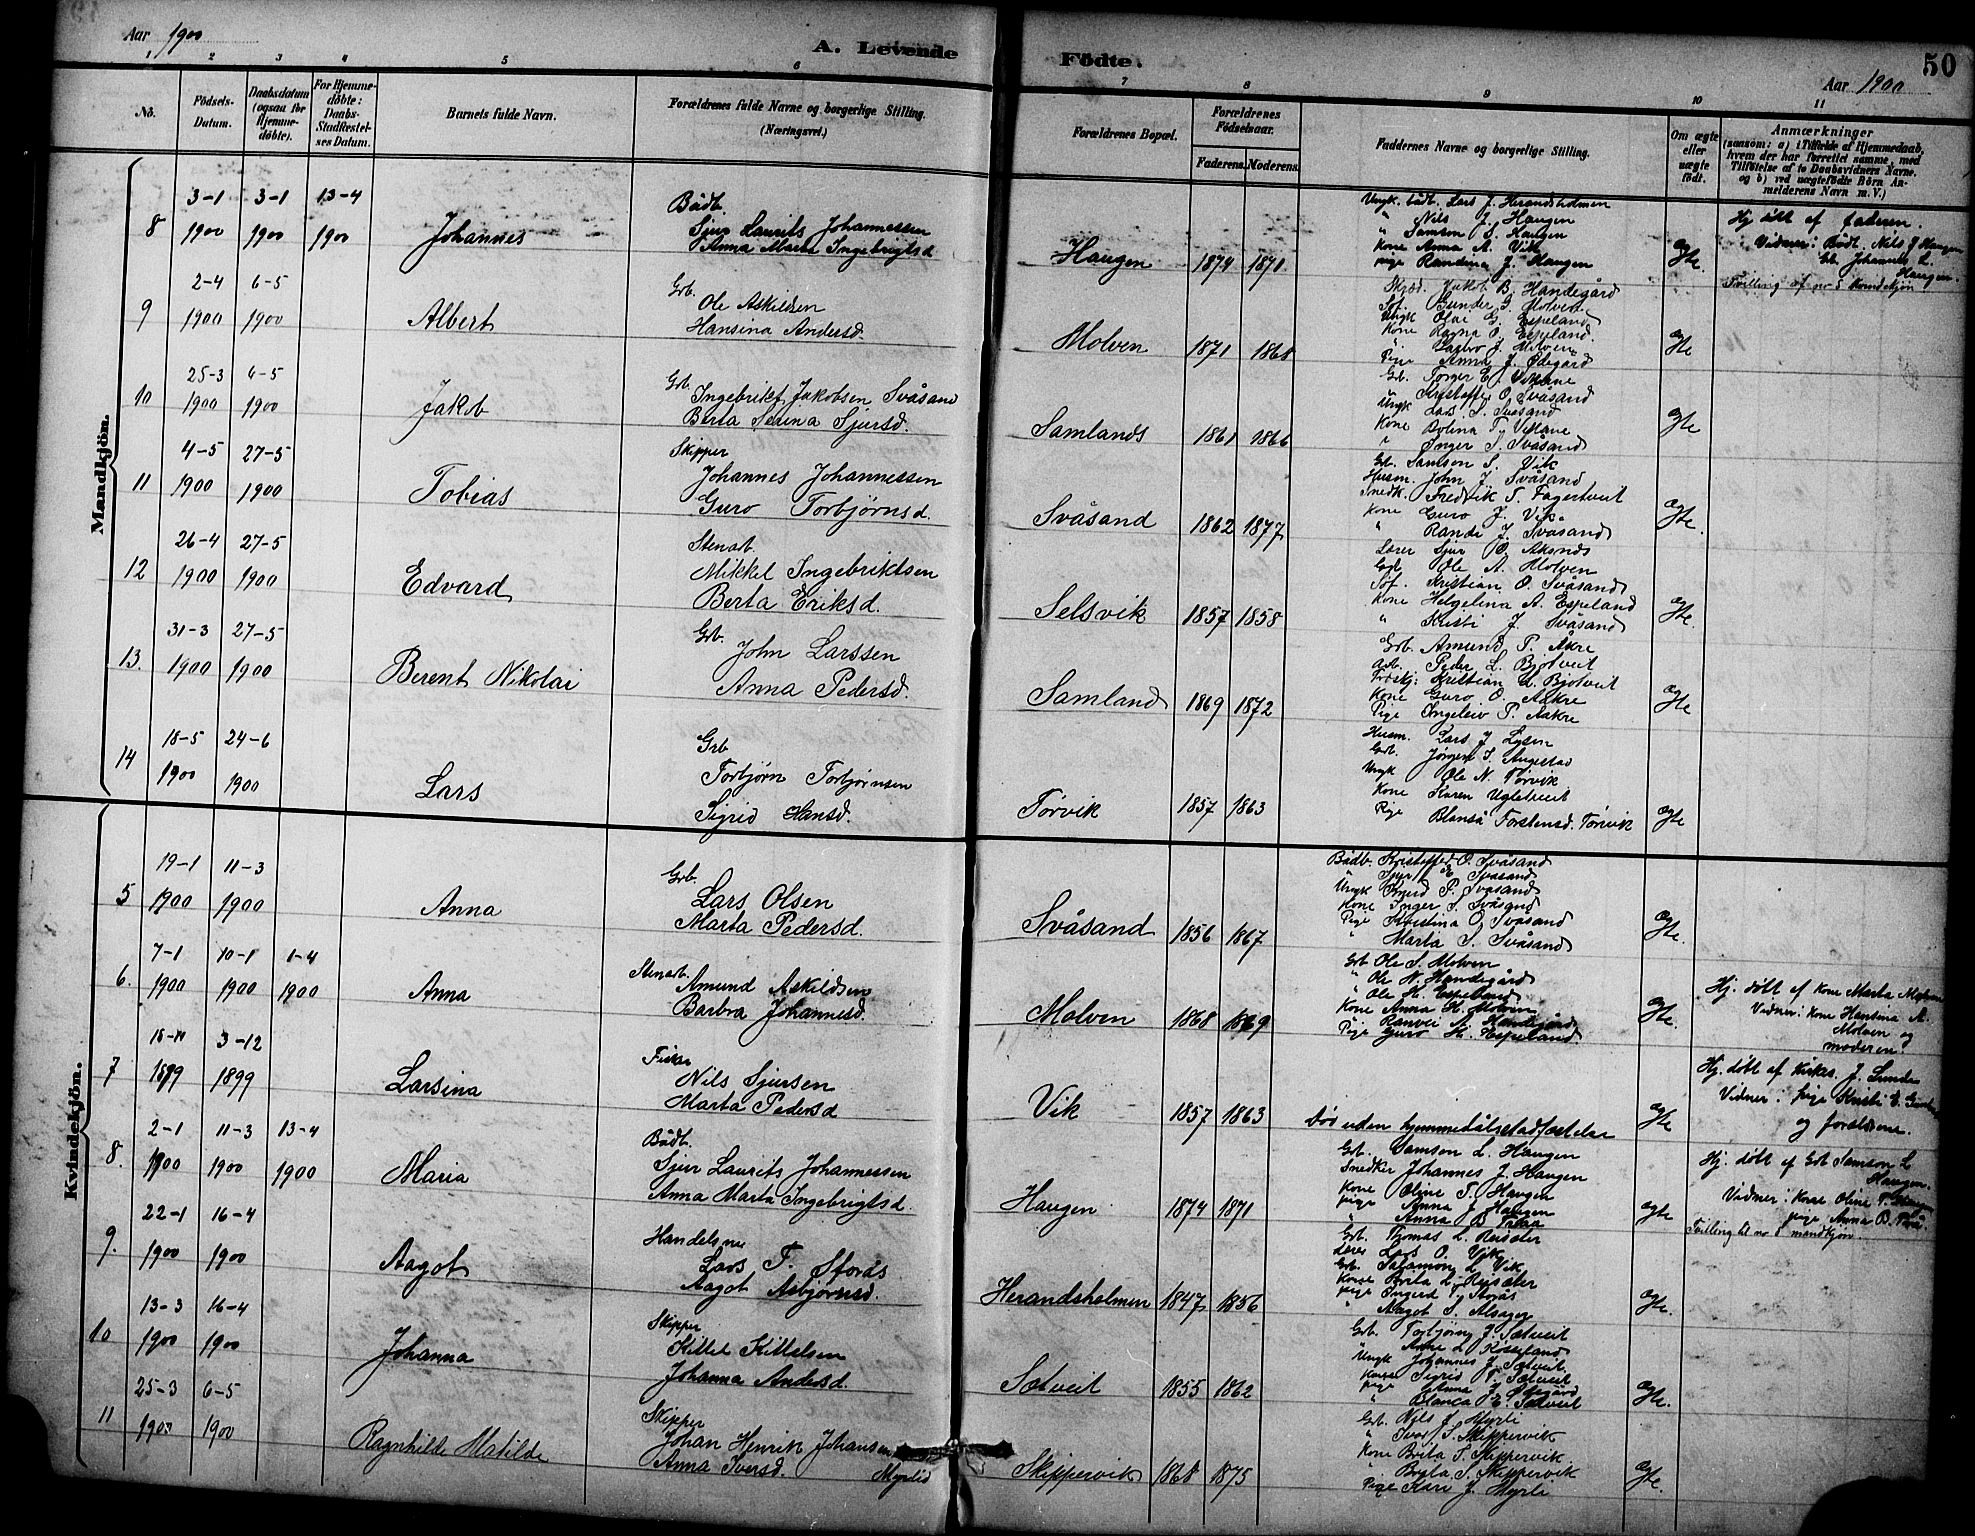 Aar 1900
A. Levende
Födte.
50
Aar 1900
1 2 3 4 5 6 7 8 9 10 11
No.
Födsels-Datum.
Daabsdatum (ogsaa for Hjemme-döbte).
For Hjemme-döbte: Daabs-Stadfæstel-ses Datum.
Barnets fulde Navn.
Forældrenes fulde Navne og borgerlige Stilling. (Næringsvei.)
Forældrenes Bopæl.
Forældrenes Födselsaar.
Faderens. Moderens.
Faddernes Navne og borgerlige Stilling.
Om ægte eller uægte födt.
Anmærkninger
(saasom: a) i Tilfælde af Hjemmedaab, hvem der har forrettet samme, med Tilföielse af to Daabsvidners Navne. og b) ved uægtefödte Börn An-melderens Navn m. V.)
Mandkjön.
8 3-1 1900 3-1 1900 13-4 1900 Johannes
Bådb.
Sjur Laurits Johannessen
Anna Marta Ingebrigtsd
Haugen 1874 1871
Ungk. bådb. Lars J. Herandsholmen
" Nils J. Haugen
" Samson S. Haugen
Kone Anna A. Vik
pige Randina J. Haugen
Ægte
Hj. døbt af faderen.
Vidner: Bådb. Nils J Haugen
Gb. Johannes L. Haugen.
Tvilling af no 8 kvindekjøn
9 2-4 1900 6-5 1900 Albert
Grb.
Ole Askildsen
Hansina Andersd.
Molven 1871 1868
Jakob B. Handegård
Gunder G. Molven
Ungk Olai G. Espeland
Kone Ragna O. Espeland.
" J. Molven
Pige Anna J. Ødegård
Ægte
10 25-3 1900 6-5 1900 Jakob
Grb.
Ingebrikt Jakobsen Svåsand
Berta Serina Sjursd.
Samlands 1861 1866
Gb. Torger E. Vikane
" Kristoffer O. Svåsand
Ungk Lars S. Svåsand
Kone Bolina T. Vikane
" Inger S. Svåsand
Ægte
11 4-5 1900 27-5 1900 Tobias
Skipper
Johannes Johannessen
Guro Torbjørnsd.
Svåsand 1862 1877
Gb. Samson S. Vik
Husm. John J. Svåsand
Snedk. Fredrik T. Fagertveit
Kone Guro J. Vik
" Randi J. Svåsand
Ægte.
12 26-4 1900 27-5 1900 Edvard
Stenarb.
Mikkel Ingebriktsen
Berta Eriksd.
Selsvik 1857 1858
Lærer Sjur O. Aksnes
Ole A. Molven
Kristian O. Svåsand
Kone Helgelina A. Espeland
" Kristi J. Svåsand
Ægte.
13. 31-3 1900 27-5 1900 Berent Nikolai
Grb.
John Larssen
Anna Pedersd.
Samland 1869 1872
Grb. Amund P. Åkre
Peder L. Bjotveit
Kristian L. Bjotveit
Kone Guro O. Aakre
Pige Ingeleiv P. Aakre
Ægte
14 18-5 1900 24-6 1900 Lars
Grb
Torbjørn Torbjørnsen
Sigrid Hansd.
Tørvik 1857 1863
Husm. Lars J Lysen
Grb. Jørgen S. Augestad
Ungk Ole N. Tørvik
Kone Karen Ugletveit
Pige Torstensd. Tørvik
Ægte
Kvindekjön.
5 19-1 1900 11-3 1900 Anna
Grb.
Lars Olsen
Marta Pedersd.
Svåsand 1856 1867
Bådb. Kristoffer O. Svåsand
" Sjur E Svåsand
Ungk Knud P. Svåsand
Kone Inger S. Svåsand
Pige Kristina O. Svåsand
" Marta S. Svåsand
Ægte.
6. 7-1 1900 10-1 1900 1-4 1900 Anna
Stenarb.
Amund Askildsen
Barbra Johannesd.
Molven 1868 1869
Grb Ole S. Molven
" Ole N. Handegård
" Ole H. Espeland
Kone Anna K. Molven
Handegård
Pige Guro H. Espeland.
Ægte.
Hj. døbt af Kone Marta Molven
Vidner: Kone Hansina A. Molven og moderen.
7 18-11 1899 3-12 1899 Larsina
Nils Sjursen
Marta Pedersd
Vik 1857 1863
Død uden hjemmedåbsstadfæstelse
Ægte
Hj. døbt af J. Sunde
Vidner: pige Kristi
og forældrene.
8. 2-1 1900 11-3 1900 13-4 1900 Maria
Bådb.
Sjur Laurits Johannessen
Anna Marta Ingebrigtsd.
Haugen 1874 1871
Grb. Samson L. Haugen
Snedker Johannes J Haugen
Kone Oline T. Haugen
pige Anna J Haugen
" Anna B
Ægte
Hj. døbt af Grb Samson L Haugen.
Vidner: Kone Oline T. Haugen
pige Anna B.
Tvilling til no 8 mandkjøn.
9. 22-1 1900 16-4 1900 Aagot
Handelsm
Lars T. Storås
Aagot Asbjørnsd.
Herandsholmen 1847 1856
Grb. Tomas L. Reisæter
Lærer Lars O. Vik
Grb. Salamon L. Vik
Kone Brita L. Reisæter
pige Ingerd T. Storås
" Aagot S. Alsager
Ægte.
10 13-3 1900 16-4 1900 Johanna
Skipper
Kittel Kittelsen
Johanna Andersd.
Sætveit 1855 1862
Grb. Torbjørn J. Sætveit
Ungk Johannes J. Sætveit
Kone Sigrid T. Sætveit
pige Anna J. Ødegård
" Blanca E. Sætveit
Ægte.
11 25-3 1900 6-5 1900 Ragnhilde Matilde
Skipper
Johan Henrik Johansen
Anna Iversd. Myrlid
Skippervik 1868 1875
Grb. Nils J. Myrli
" Ivar S. Skippervik
Kone Brita T. Skippervik
" Brita S. Skippervik
Pige Kari J. Myrli
Ægte.